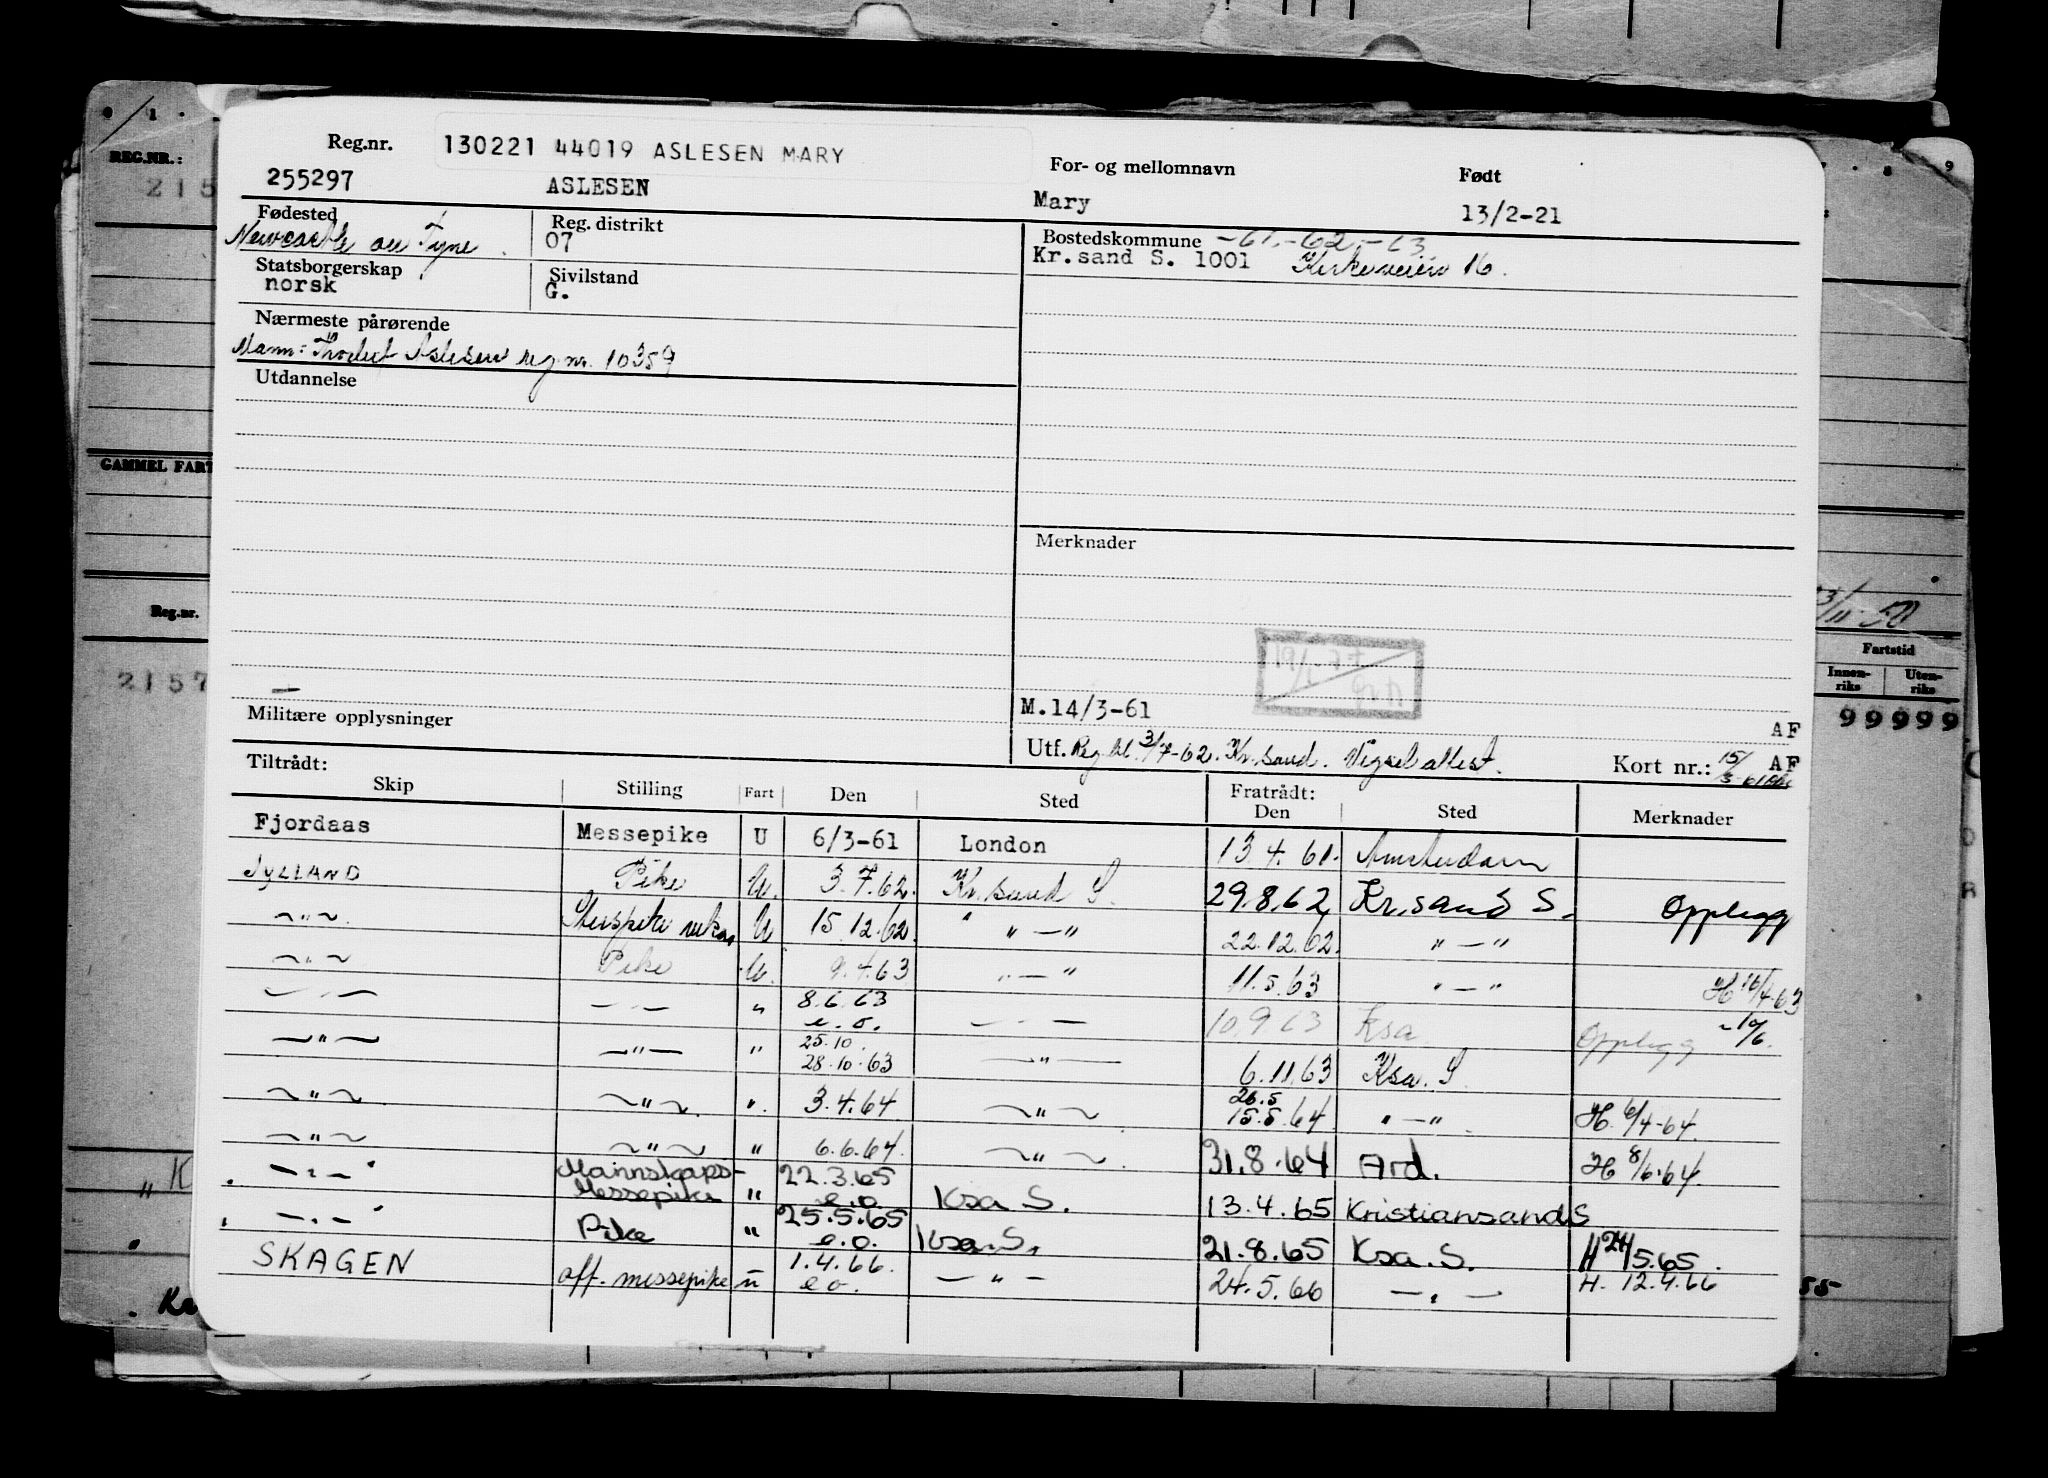 Reg.nr. 130221 44019 ASLESEN MARY
255297 ASLESEN
For- og mellomnavn Født
Mary 13/2-21
Fødested Reg. distrikt
Newcastle on Tyne 07
Statsborgerskap Sivilstand
norsk G.
Bostedskommune -61.-62.-63
Kr.sand S. 1001 Kirkeveien 16.
Nærmeste pårørende
Mann: Aslesen reg nr. 10359
Utdannelse
Merknader
Militære opplysninger
M.14/3-61
AF
Utf. 3/7-62. Kr.sand. Vigselattest. Kort nr.: 15/3-61 AF
Tiltrådt: Fratrådt:
Skip Stilling Fart Den Sted Den Sted Merknader
Fjordaas Messepike U 6/3-61 London 13.4.61. Amsterdam
JYLLAND Pike U. 3.7.62. Kr.sand S. 29.8.62 Kr.sand S. Opplegg
~"~ U 15.12.62. " —" 22.12.62. " —"
~"~ Pike U. 9.4.63 " —" 11.5.63 " —" H 16/4-63
—"— —"— " 8.6.63 e.o. —"— 10.9.63 Ksa Opplegg
—"— —"— " 25.10. 28.10.63 —"— 6.11.63 Ksa. S
~"~ ~"~ ". 3.4.64 ~"~ 26.5 15.5.64 " —" H. 6/4-64.
~"~ ~"~ " 6.6.64. ~"~ 31.8.64 Ard. H 8/6-64.
—"— Mannskaps-Messepike " 22.3.65 e.o. Ksa S. 13.4.65 Kristiansand S
—"— Pike " 25.5.65 e.o. Ksa. S. 21.8.65 Ksa. S. H 24/5.65.
SKAGEN off. messepike u 1.4.66. e o. —"— 24.5.66 —"— H. 12.4.66
REG.NR.:
215
GAMMEL FART
Reg.nr.
2157
Fartstid
Innen-riks Uten-riks
99999
55